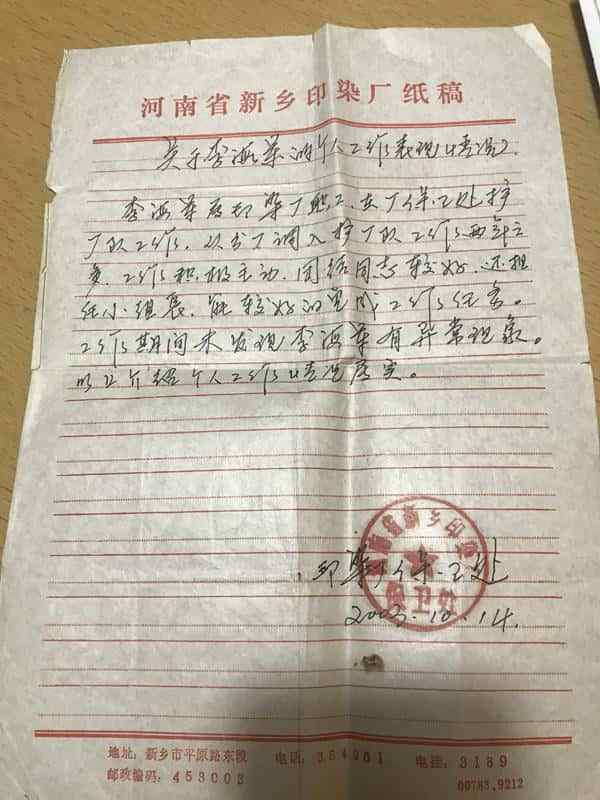 河南省新乡印染厂纸稿
关于李海军的个人工作表现(情况)
李海军原印染厂职工,在厂保卫处护
厂队工作。从分厂调入护厂队工作两年之
多,工作积极主动,团结同志较好,还担
任小组长,能较好的完成工作任务。
工作期间未发现李海军有异常现象。
以上介绍个人工作情况属实。
河南省新乡印染
保卫处
印染厂保卫处
2003.10.14.
地址:新乡市平原路东段 电话:354961 电挂:3189
邮政编码:453003 00783.9212